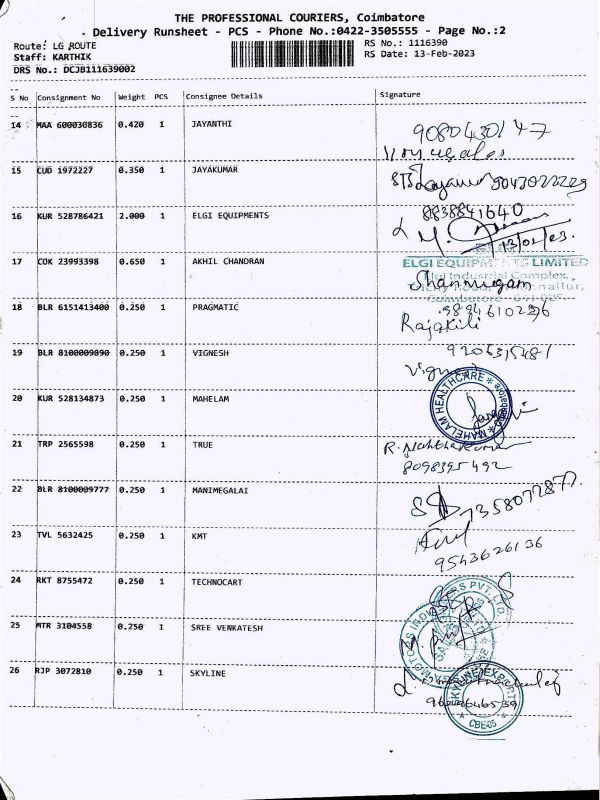 THE PROFESSIONAL COURIERS, Coimbatore
Delivery Runsheet - PCS - Phone No.:0422-3505555 - Page No.:2
Route: LG ROUTE
RS No.: 1116390
Staff: KARTHIK
RS Date: 13-Feb-2023
DRS No.: DCJB111639002
S No Consignment No Weight PCS Consignee Details Signature
14 MAA 600030836 0.420 1 JAYANTHI
9080430147
15 CUD 1972227 0.350 1 JAYAKUMAR
9043022229
16 KUR 528786421 2.000 1 ELGI EQUIPMENTS
8838841640
13/02/23.
17 COK 23993398 0.650 1 AKHIL CHANDRAN
ELGI EQUIPMENTS LIMITED
Elgi Industrial Complex,
Shanmugam
18 BLR 6151413400 0.250 1 PRAGMATIC
9894610296
Rajakili
19 BLR 8100009890 0.250 1 VIGNESH
Vignesh
20 KUR 528134873 0.250 1 MAHELAM
MAHELAM HEALTHCARE
21 TRP 2565598 0.250 1 TRUE
8098395492
22 BLR 8100009777 0.250 1 MANIMEGALAI
7358072877.
23 TVL 5632425 0.250 1 KMT
9543626136
24 RKT 8755472 0.250 1 TECHNOCART
25 MTR 3104558 0.250 1 SREE VENKATESH
26 RJP 3072810 0.250 1 SKYLINE
SKYLINE EXPORTS
CBE-05